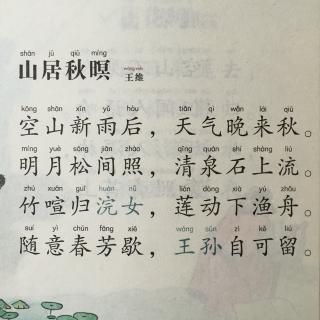 shān jū qiū míng
山居秋暝
wáng wéi
王维
kōng shān xīn yǔ hòu tiān qì wǎn lái qiū
空山新雨后，天气晚来秋。
míng yuè sōng jiān zhào qīng quán shí shàng liú
明月松间照，清泉石上流。
zhú xuān guī huàn nǚ lián dòng xià yú zhōu
竹喧归浣女，莲动下渔舟。
suí yì chūn fāng xiē wáng sūn zì kě liú
随意春芳歇，王孙自可留。